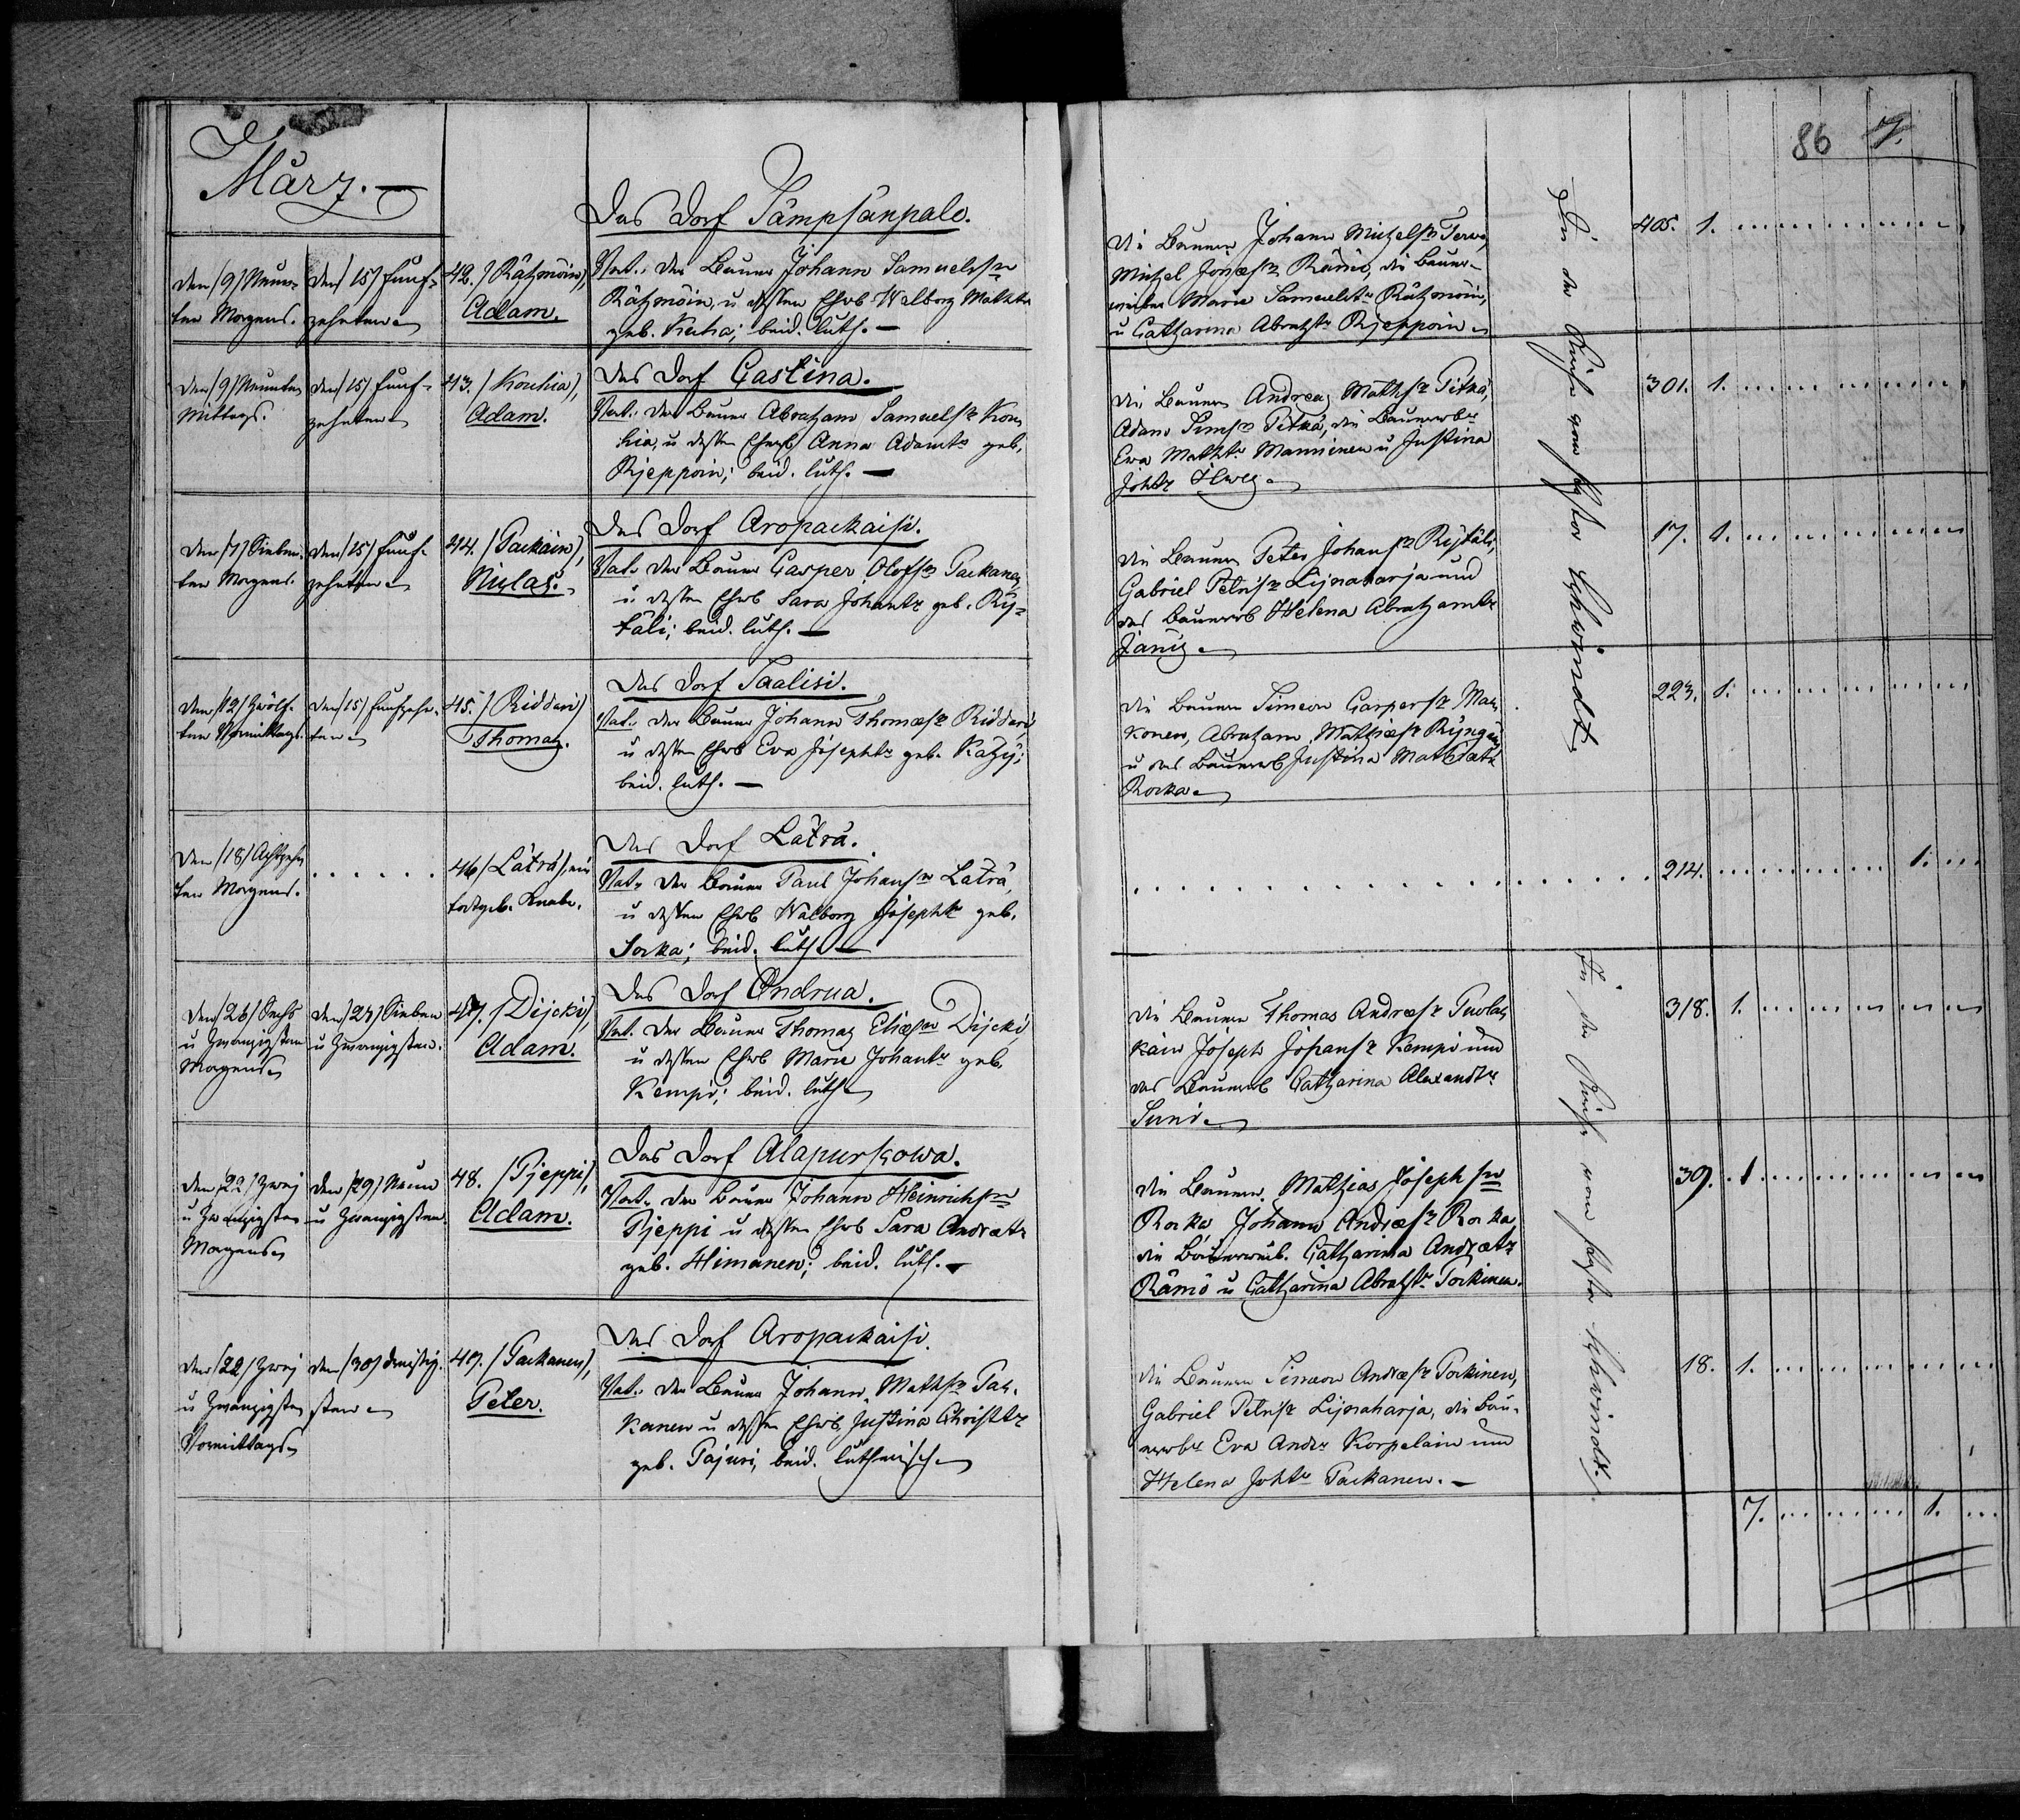 März.
den /9/ Neun-
ten Morgens.
den /15/ Funf-
zehnten
42. /Rätzmöin/,
Adam.
Das Dorf Pämpsänpale.
Vat. der Bauer Johann Samuelsn
Rätzmöin, u dessen Ehwb Walborg Mathtr
geb. Kuha; beid. luth.
die Bauern Johann Michelsn Terwo,
Michel Jonæsn Rämö, die Bauer-
weiber Marie Samuelstr Rätzmöin,
u Catharina Abrahstr Rjeppoin
405. 1.
den /9/ Neunten
Mittags.
den /15/ Funf-
zehnten
43. /Kouhia/,
Adam.
Das Dorf Gastina.
Vat. der Bauer Abraham Samuelsn Kou-
hia, u dessen Ehwb Anna Adamtr geb.
Rjeppoin; beid. luth.
die Bauern Andreas Mathsn Pitkä,
Adam Simsn Pitkä, die Bauerwbr
Ewa Mathtr Manninen u Justina
Johtr Ilweg
301. 1.
den /7/ Sieben-
ten Morgens.
den /15/ Funf-
zehnten
44. /Packäin/,
Niclas.
Das Dorf Aropackaisi.
Vat. der Bauer Casper Olofsn Packanen
u dessen Ehwb Sara Johantr geb. Ry-
käli; beid. luth.
die Bauern Peter Johansn Rykäli,
Gabriel Petrisn Lijnaharja und
das Bauerwb Helena Abrahamtr
Jänis
17. 1.
den /12/ Zwölf-
ten Vormittags.
den /15/ Funfzehn-
ten
45. /Riddari/
Thomas.
Das Dorf Taalisi.
Vat. der Bauer Johann Thomæsn Riddari,
u dessen Ehwb Eva Josephtr geb. Kähy;
beid. luth.
die Bauern Simeon Caspersn Mac-
konen, Abraham Mathiæsn Ryngäin
u das Bauerwb Justina Mathiætr
Rocka
223. 1.
den /18/ Achtzehn
ten Morgens.
46 /Läträ/, ein
todtgeb. Knabe.
Das Dorf Läträ.
Vat. der Bauer Paul Johansn Läträ,
u dessen Ehwb Walborg Josephtr geb.
Sorka; beid. luth
214. 1.
den /26/ Sechs
u Zwanzigsten
Morgens
den /27/ Sieben
u Zwanzigsten.
47. /Dijcki/,
Adam.
Das Dorf Andrua.
Vat. der Bauer Thomas Eliæsn Dijcki,
u dessen Ehwb Marie Johantr geb.
Kempi; beid. luth
die Bauern Thomas Andræsn Puolac-
kain Joseph Johansn Kempi und
das Bauerwb Catharina Alexandtr
Suni
318. 1.
den /22/ Zwej
u Zwanzigsten
Morgens
den /29/ Neun
u Zwanzigsten.
48. /Pjeppi/,
Adam.
Das Dorf Alapurskowa.
Vat. der Bauer Johann Heinrichsn
Pjeppi u dessen Ehwb Sara Andrætr
geb. Himanen; beid. luth.
die Bauern Mathias Josephsn
Rocka Johann Andræsn Rocka,
die Bauerweib. Catharina Andrætr
Rämö u Catharina Abrahstr Torkinen.
39. 1.
den /22/ Zwej
u Zwanzigsten
Vormittags
den /30/ dreißig-
sten
49. /Packanen/,
Peter.
Das Dorf Aropackaisi.
Vat. der Bauer Johann Mathsn Pac-
kanen u dessen Ehwb Justina Christtr
geb. Pajuri, beid. lutherisch
die Bauern Simeon Andræsn Torkinen,
Gabriel Petrisn Lijnaharja, die Bau-
erwbr Eva Andtr Korpelain und
Helena Johtr Packanen.
18. 1.
In der Kirche vom Pastor Schwindt
In der Kirche vom Pastor Schwindt.
86 7.
7. 1.